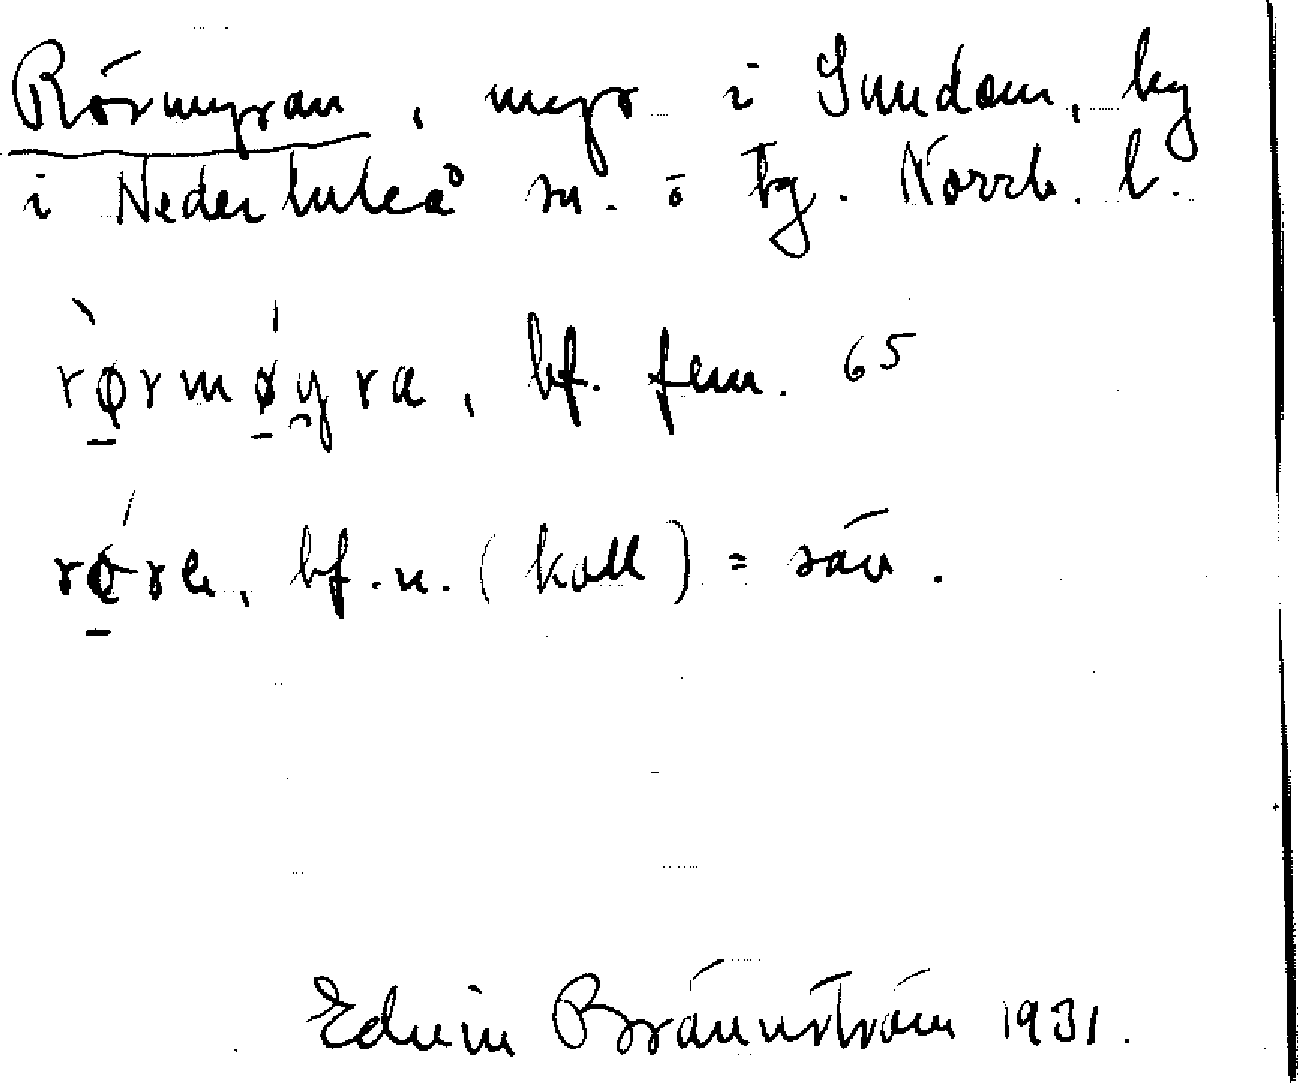 Rörmyran, myr i Sundom, by
i Nederluleå sn. o tg. Norrb. l.
rø̱rmø̱y̑ra, bf. fem. 65
rø̱re, bf. n. (koll) = säv.
Edwin Brännström 1931.